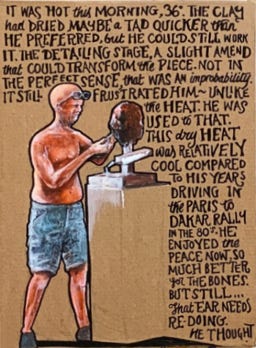 IT WAS HOT this MORNING, 36°. THE CLAY
had DRIED MAYBE a TAD QUICKER than
HE PREFERRED, but HE COULD STILL WORK
IT. THE DETAILING STAGE, A SLIGHT AMEND
that COULD TRANSFORM the PIECE. NOT IN
THE PERFECT SENSE, that WAS AN improbability.
IT STILL FRUSTRATED HIM ~ UNLIKE
the HEAT. HE WAS
USED to THAT.
THIS dry HEAT
was RELATIVELY
COOL COMPARED
TO HIS YEARS
DRIVING IN
the PARIS to
DAKAR RALLY
IN THE 80's. HE
ENJOYED the
PEACE NOW, SO
MUCH BETTER
for THE BONES.
BUT STILL...
that EAR NEEDS
RE-DOING.
HE THOUGHT